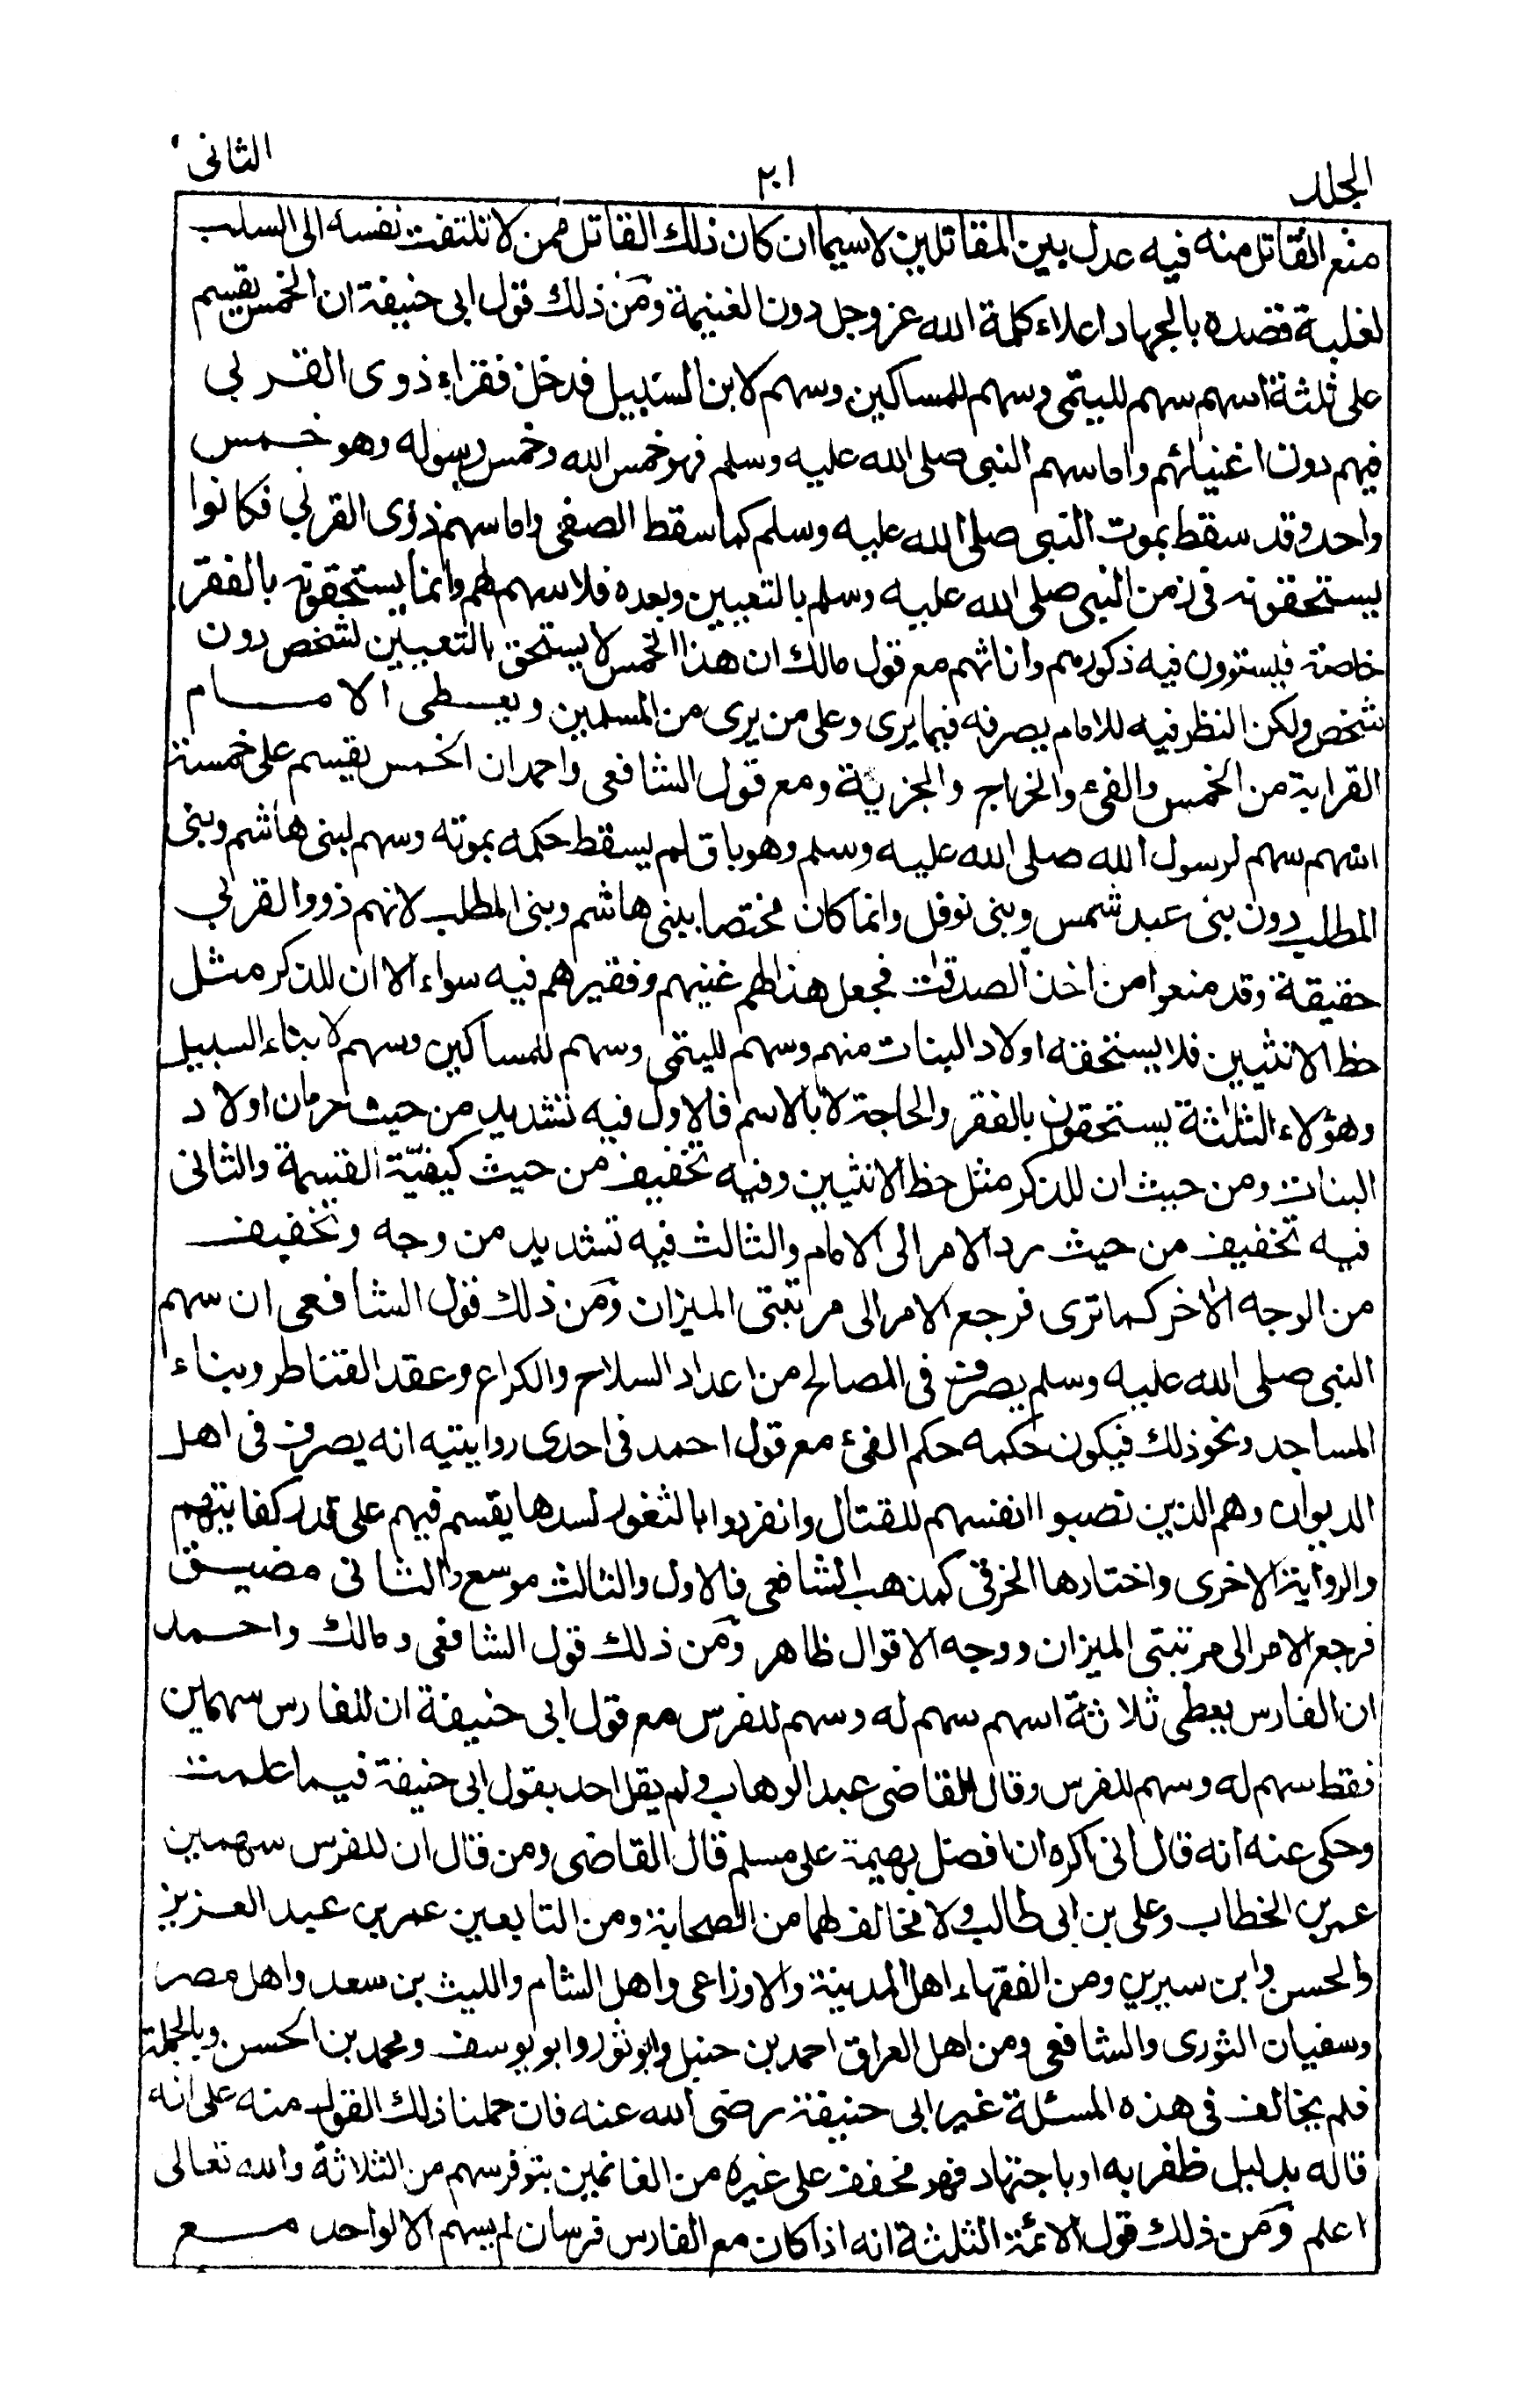 المجلد
٢٠١
الثانى
منع القاتل منه فيه عدل بين المقاتلين لاسيما ان كان ذلك القاتل ممن لا تلتفت نفسه الى السلب
لغلبة قصده بالجهاد اعلاء كلمة الله عز وجل دون الغنيمة ومن ذلك قول ابى حنيفة ان الخمس يقسم
على ثلثة اسهم سهم لليتمى وسهم للمساكين وسهم لابن السبيل فدخل فقراء ذوى القربى
فيهم دون اغنيائهم واما سهم النبى صلى الله عليه وسلم فهو خمس الله وخمس رسوله وهو خمس
واحد وقد سقط بموت النبى صلى الله عليه وسلم كما سقط الصفى واما سهم ذوى القربى فكانوا
يستحقونه فى زمن النبى صلى الله عليه وسلم بالتعيين وبعده فلا سهم لهم وانما يستحقونه بالفقر
خاصة فيستوون فيه ذكورهم واناثهم مع قول مالك ان هذا الخمس لا يستحق بالتعيين لشخص دون
شخص ولكن النظر فيه للامام يصرفه فيما يرى وعلى من يرى من المسلمين ويعطى الامام
القرابة من الخمس والفئ والخراج والجزية ومع قول الشافعى واحمد ان الخمس يقسم على خمسة
اسهم سهم لرسول الله صلى الله عليه وسلم وهو باق لم يسقط حكمه بموته وسهم لبنى هاشم وبنى
المطلب دون بنى عبد شمس وبنى نوفل وانما كان مختصا ببنى هاشم وبنى المطلب لانهم ذووا القربى
حقيقة وقد منعوا من اخذ الصدقات فجعل هذا لهم غنيهم وفقيرهم فيه سواء الا ان للذكر مثل
حظ الانثيين فلا يستحقه اولاد البنات منهم وسهم لليتمى وسهم للمساكين وسهم لابناء السبيل
وهؤلاء الثلثة يستحقون بالفقر والحاجة لا بالاسم فالاول فيه تشديد من حيث حرمان اولاد
البنات ومن حيث ان للذكر مثل حظ الانثيين وفيه تخفيف من حيث كيفية القسمة والثانى
فيه تخفيف من حيث رد الامر الى الامام والثالث فيه تشديد من وجه وتخفيف
من الوجه الاخر كما ترى فرجع الامر الى مرتبتى الميزان ومن ذلك قول الشافعى ان سهم
النبى صلى الله عليه وسلم يصرف فى المصالح من اعداد السلاح والكراع وعقد القناطر وبناء
المساجد ونحو ذلك فيكون حكمه حكم الفئ مع قول احمد فى احدى روايتيه انه يصرف فى اهل
الديوان وهم الذين نصبوا انفسهم للقتال وانفردوا بالثغور لسدها يقسم فيهم على قدر كفايتهم
والرواية الاخرى واختارها الخرقى كمذهب الشافعى فالاول والثالث موسع والثانى مضيق
فرجع الامر الى مرتبتى الميزان ووجه الاقوال ظاهر ومن ذلك قول الشافعى ومالك واحمد
ان الفارس يعطى ثلاثة اسهم سهم له وسهم للفرس مع قول ابى حنيفة ان للفارس سهمين
فقط سهم له وسهم للفرس وقال القاضى عبد الوهاب ولم يقل احد بقول ابى حنيفة فيما علمت
وحكى عنه انه قال انى اكره ان افضل بهيمة على مسلم قال القاضى ومن قال ان للفرس سهمين
عمر بن الخطاب وعلى بن ابى طالب ولا مخالف لهما من الصحابة ومن التابعين عمر بن عبد العزيز
والحسن وابن سيرين ومن الفقهاء اهل المدينة والاوزاعى واهل الشام والليث بن سعد واهل مصر
وسفيان الثورى والشافعى ومن اهل العراق احمد بن حنبل وابو ثور وابو يوسف ومحمد بن الحسن وبالجملة
فلم يخالف فى هذه المسئلة غير ابى حنيفة رضى الله عنه فان حملنا ذلك القول منه على انه
قاله بدليل ظفر به او باجتهاد فهو مخفف على غيره من الغانمين بتوفر سهم من الثلاثة والله تعالى
اعلم ومن ذلك قول الائمة الثلثة انه اذا كان مع الفارس فرسان لم يسهم الا لواحد مع